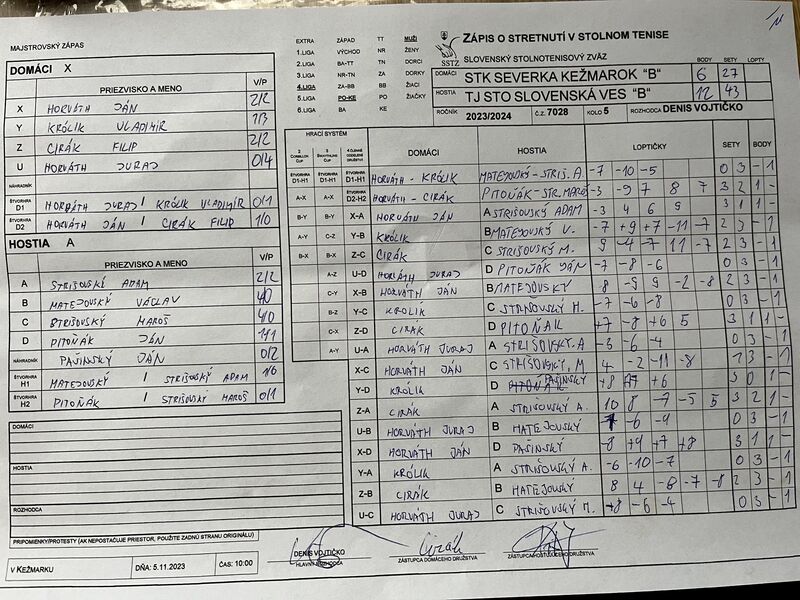 MAJSTROVSKÝ ZÁPAS
EXTRA ZÁPAD TT MUŽI
1.LIGA VÝCHOD NR ŽENY
2.LIGA BA-TT TN DORCI
3.LIGA NR-TN ZA DORKY
4.LIGA ZA-BB BB ŽIACI
5.LIGA PO-KE PO ŽIAČKY
6.LIGA BA KE
SSTZ
ZÁPIS O STRETNUTÍ V STOLNOM TENISE
SLOVENSKÝ STOLNOTENISOVÝ ZVÄZ
BODY SETY LOPTY
DOMÁCI STK SEVERKA KEŽMAROK "B" 6 27
HOSTIA TJ STO SLOVENSKÁ VES "B" 12 43
ROČNÍK 2023/2024 Č.Z. 7028 KOLO 5 ROZHODCA DENIS VOJTIČKO
DOMÁCI X
PRIEZVISKO A MENO V/P
X HORVÁTH JÁN 2/2
Y KRÓLIK VLADIMÍR 1/3
Z CIRÁK FILIP 2/2
U HORVÁTH JURAJ 0/4
NÁHRADNÍK
ŠTVORHRA D1 HORVÁTH JURAJ / KRÓLIK VLADIMÍR 0/1
ŠTVORHRA D2 HORVÁTH JÁN / CIRÁK FILIP 1/0
HOSTIA A
PRIEZVISKO A MENO V/P
A STRIŠOVSKÝ ADAM 2/2
B MATEJOVSKÝ VÁCLAV 4/0
C STRIŠOVSKÝ MAROŠ 4/0
D PITOŇÁK JÁN 1/1
NÁHRADNÍK PAŠINSKÝ JÁN 0/2
ŠTVORHRA H1 MATEJOVSKÝ / STRIŠOVSKÝ ADAM 1/0
ŠTVORHRA H2 PITOŇÁK / STRIŠOVSKÝ MAROŠ 0/1
DOMÁCI
HOSTIA
ROZHODCA
PRIPOMIENKY/PROTESTY (AK NEPOSTAČUJE PRIESTOR, POUŽITE ZADNÚ STRANU ORIGINÁLU)
V KEŽMARKU DŇA: 5.11.2023 ČAS: 10:00
HRACÍ SYSTÉM DOMÁCI HOSTIA LOPTIČKY SETY BODY
ŠTVORHRA D1-H1 ŠTVORHRA D1-H1 D1-H1 HORVÁTH - KRÓLIK MATEJOVSKÝ - STRIŠ. A -7 -10 -5 0 3 - 1
A-X A-X D2-H2 HORVÁTH - CIRÁK PITOŇÁK - STR. MAROŠ -3 -9 7 8 7 3 2 1 -
B-Y B-Y X-A HORVÁTH JÁN A STRIŠOVSKÝ ADAM -3 4 6 9 3 1 1 -
A-Y C-Z Y-B KRÓLIK B MATEJOVSKÝ V. -7 +9 +7 -11 -7 2 3 - 1
B-X B-X Z-C CIRÁK C STRIŠOVSKÝ M. 9 -4 -7 11 -7 2 3 - 1
A-Z U-D HORVÁTH JURAJ D PITOŇÁK JÁN -7 -8 -6 0 3 - 1
C-Y X-B HORVÁTH JÁN B MATEJOVSKÝ 8 -9 9 -2 -8 2 3 - 1
B-Z Y-C KRÓLIK C STRIŠOVSKÝ M. -7 -6 -8 0 3 - 1
C-X Z-D CIRÁK D PITOŇÁK +7 -8 +6 5 3 1 1 -
A-Y U-A HORVÁTH JURAJ A STRIŠOVSKÝ A -3 -6 -4 0 3 - 1
X-C HORVÁTH JÁN C STRIŠOVSKÝ M. 4 -2 -11 -8 1 3 - 1
Y-D KRÓLIK D PAŠINSKÝ +8 +7 +6 3 0 1 -
Z-A CIRÁK A STRIŠOVSKÝ A. 10 8 -7 -5 5 3 2 1 -
U-B HORVÁTH JURAJ B MATEJOVSKÝ -6 -4 0 3 - 1
X-D HORVÁTH JÁN D PAŠINSKÝ -8 +9 +7 +8 3 1 1 -
Y-A KRÓLIK A STRIŠOVSKÝ A. -6 -10 -7 0 3 - 1
Z-B CIRÁK B MATEJOVSKÝ 8 4 -6 -7 -8 2 3 - 1
U-C HORVÁTH JURAJ C STRIŠOVSKÝ M. -6 -4 0 3 - 1
DENIS VOJTIČKO
HLAVNÝ ROZHODCA
Cirák
ZÁSTUPCA DOMÁCEHO DRUŽSTVA
ZÁSTUPCA HOSŤUJÚCEHO DRUŽSTVA